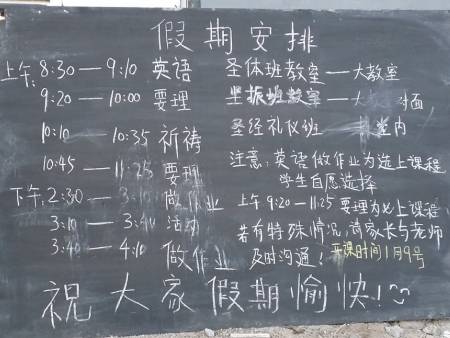 假期安排
上午:8:30—9:10 英语
9:20—10:00 要理
10:10—10:35 祈祷
10:45—11:25 要理
下午,2:30—3:10 做作业
3:10—3:40 活动
3:40—4:10 做作业
圣体班教室—大教室
坚振班教室—大 对面,
圣经礼仪班— 堂内
注意,英语做作业为选上课程
学生自愿选择
上午9:20—11:25要理为必上课程,
若有特殊情况,请家长与老师
及时沟通!开课时间1月9号
祝大家假期愉快!